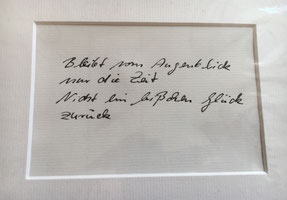 Bleibt vom Augenblick
nur die Zeit
Nicht ein bißchen Glück
zurück